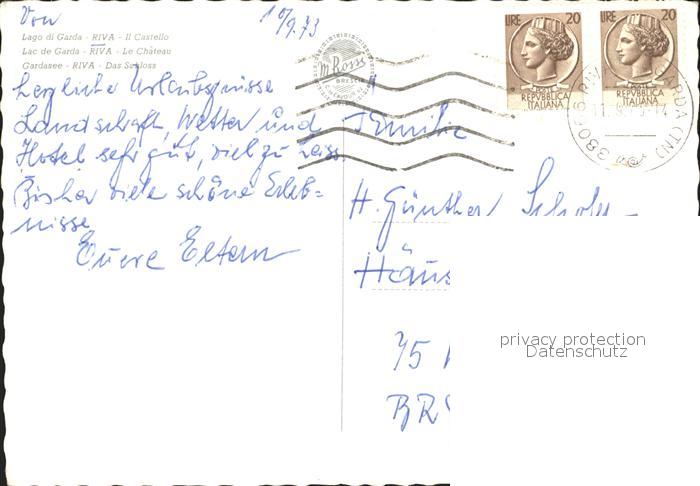 Von 10/9.73
Lago di Garda - RIVA - Il Castello
Lac de Garda - RIVA - Le Château
Gardasee - RIVA - Das Schloss
herzliche Urlaubsgrüsse
Landschaft, Wetter und
Hotel sehr gut, viel zu heiss
Bisher viele schöne Erleb=
nisse
Euere Eltern
m. Ross
BRESCIA
LIRE 20
REPVBBLICA
ITALIANA
LIRE 20
REPVBBLICA
ITALIANA
38066 RIVA GARDA (TN)
Familie
H. Günther
Häus
75
BR
privacy protection
Datenschutz